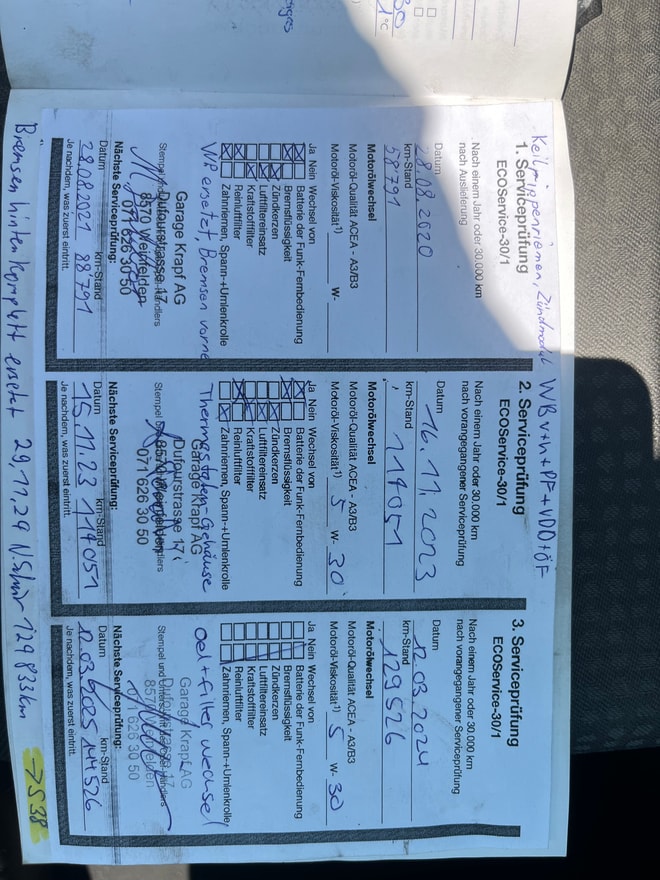 Keilrippenriemen, Zündmodul WBv+h+PF+VDD+ÖF
1. Serviceprüfung
ECOService-30/1
Nach einem Jahr oder 30.000 km
nach Auslieferung
Datum
28.08.2020
km-Stand
58791
Motorölwechsel
Motoröl-Qualität ACEA - A3/B3
Motoröl-Viskosität¹) W-
Ja Nein Wechsel von
Batterie der Funk-Fernbedienung
Bremsflüssigkeit
Zündkerzen
Luftfiltereinsatz
Kraftstofffilter
Reinluftfilter
Zahnriemen, Spann-+Umlenkrolle
ersetzt, Bremsen vorne
Garage Krapf AG
Dufourstrasse 17
8570 Weinfelden
071 626 30 50
Nächste Serviceprüfung:
Datum km-Stand
28.08.2021 88791
Je nachdem, was zuerst eintritt.
2. Serviceprüfung
ECOService-30/1
Nach einem Jahr oder 30.000 km
nach vorangegangener Serviceprüfung
Datum
16.11.2023
km-Stand
114051
Motorölwechsel
Motoröl-Qualität ACEA - A3/B3
Motoröl-Viskosität¹) 5 W- 30
Ja Nein Wechsel von
Batterie der Funk-Fernbedienung
Bremsflüssigkeit
Zündkerzen
Luftfiltereinsatz
Kraftstofffilter
Reinluftfilter
Zahnriemen, Spann-+Umlenkrolle
Thermostaten-Gehäuse
Garage Krapf AG
Dufourstrasse 17
8570 Weinfelden
071 626 30 50
Nächste Serviceprüfung:
Datum km-Stand
15.11.23 114051
Je nachdem, was zuerst eintritt.
3. Serviceprüfung
ECOService-30/1
Nach einem Jahr oder 30.000 km
nach vorangegangener Serviceprüfung
Datum
12.03.2024
km-Stand
129526
Motorölwechsel
Motoröl-Qualität ACEA - A3/B3
Motoröl-Viskosität¹) 5 W- 30
Ja Nein Wechsel von
Batterie der Funk-Fernbedienung
Bremsflüssigkeit
Zündkerzen
Luftfiltereinsatz
Kraftstofffilter
Reinluftfilter
Zahnriemen, Spann-+Umlenkrolle
Oel+filter wechsel
Garage Krapf AG
Dufourstrasse 17
8570 Weinfelden
071 626 30 50
Nächste Serviceprüfung:
Datum km-Stand
12.03. 144526
Je nachdem, was zuerst eintritt.
Bremsen hinten komplett ersetzt 129833km → S38